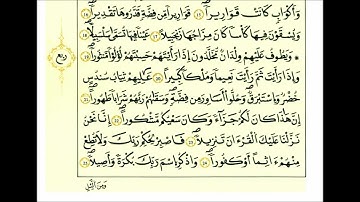 وَأَكْوَابٍ كَانَتْ قَوَارِيرَا ١٥ قَوَارِيرَا مِن فِضَّةٍ قَدَّرُوهَا تَقْدِيرًا ١٦
وَيُسْقَوْنَ فِيهَا كَأْسًا كَانَ مِزَاجُهَا زَنجَبِيلًا ١٧ عَيْنًا فِيهَا تُسَمَّىٰ سَلْسَبِيلًا ١٨
وَيَطُوفُ عَلَيْهِمْ وِلْدَانٌ مُّخَلَّدُونَ إِذَا رَأَيْتَهُمْ حَسِبْتَهُمْ لُؤْلُؤًا مَّنثُورًا ١٩
ربع
وَإِذَا رَأَيْتَ ثَمَّ رَأَيْتَ نَعِيمًا وَمُلْكًا كَبِيرًا ٢٠ عَالِيَهُمْ ثِيَابُ سُندُسٍ
خُضْرٌ وَإِسْتَبْرَقٌ وَحُلُّوا أَسَاوِرَ مِن فِضَّةٍ وَسَقَاهُمْ رَبُّهُمْ شَرَابًا طَهُورًا ٢١
إِنَّ هَٰذَا كَانَ لَكُمْ جَزَاءً وَكَانَ سَعْيُكُم مَّشْكُورًا ٢٢ إِنَّا نَحْنُ
نَزَّلْنَا عَلَيْكَ الْقُرْآنَ تَنزِيلًا ٢٣ فَاصْبِرْ لِحُكْمِ رَبِّكَ وَلَا تُطِعْ
مِنْهُمْ آثِمًا أَوْ كَفُورًا ٢٤ وَاذْكُرِ اسْمَ رَبِّكَ بُكْرَةً وَأَصِيلًا ٢٥
وَمِنَ اللَّيْلِ